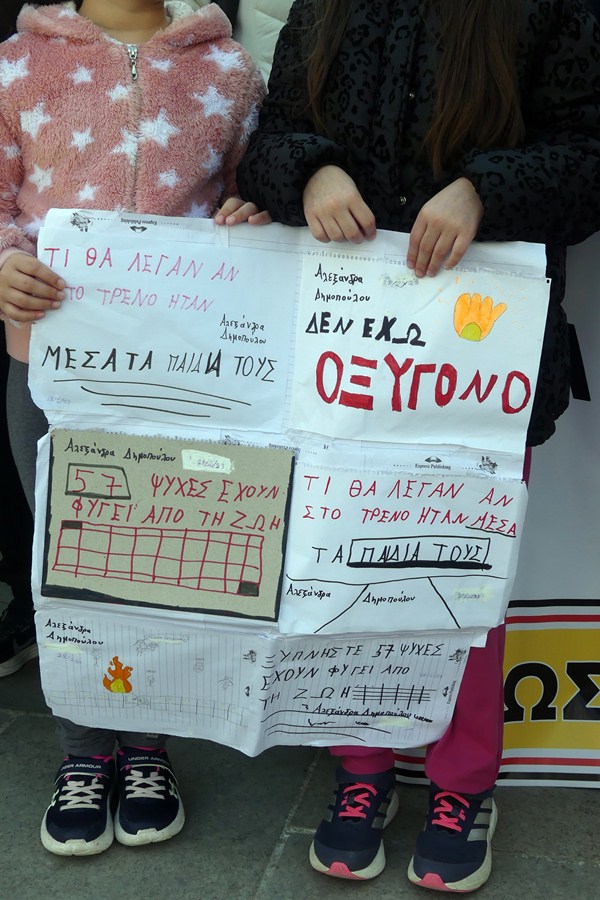 Express Publishing
ΤΙ ΘΑ ΛΕΓΑΝ ΑΝ
ΣΤΟ ΤΡΕΝΟ ΗΤΑΝ
Αλεξάνδρα
Δημοπούλου
ΜΕΣΑ ΤΑ ΠΑΙΔΙΑ ΤΟΥΣ
Αλεξάνδρα
Δημοπούλου
ΔΕΝ ΕΧΩ
ΟΞΥΓΟΝΟ
Αλεξάνδρα Δημοπούλου
57 ΨΥΧΕΣ ΕΧΟΥΝ
ΦΥΓΕΙ ΑΠΟ ΤΗ ΖΩΗ
Express Publishing
ΤΙ ΘΑ ΛΕΓΑΝ ΑΝ
ΣΤΟ ΤΡΕΝΟ ΗΤΑΝ ΜΕΣΑ
ΤΑ ΠΑΙΔΙΑ ΤΟΥΣ
Αλεξάνδρα Δημοπούλου
Αλεξάνδρα
Δημοπούλου
ΞΥΠΝΗΣΤΕ 57 ΨΥΧΕΣ
ΕΧΟΥΝ ΦΥΓΕΙ ΑΠΟ
ΤΗ ΖΩΗ
Αλεξάνδρα Δημοπούλου
ΩΣ
UNDER ARMOUR
UNDER ARMOUR